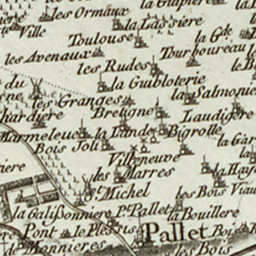 la Glapiere
les Ormaux
la Lassiere
Ville
Toulouse
la Gde
les Avenaux
Tourboureau
les Rudes
la Guibloterie
la Salmoniere
les Granges
Breugne
Laudigere
Marmeleuc
la Lande
Bigrolle
Bois Joli
Villeneuve
les Marres
St Michel
les Bois Viau
la Galissonniere
Pt Pallet
la Bouillere
Pont
le Plessis
Pallet
de Monnieres
les Bois